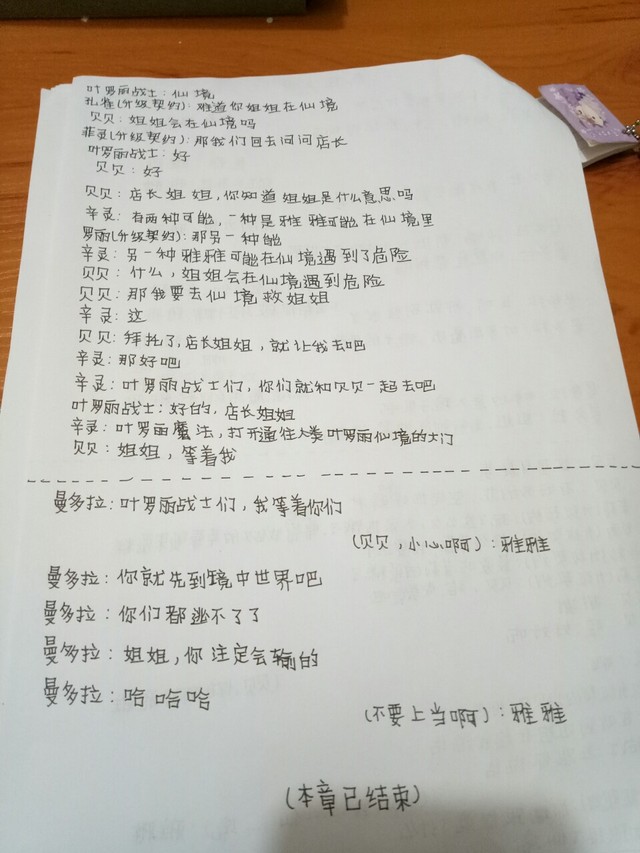 叶罗丽战士：仙境
孔雀(分级契约)：难道你姐姐在仙境
贝贝：姐姐会在仙境吗
菲灵(分级契约)：那我们回去问问店长
叶罗丽战士：好
贝贝：好
贝贝：店长姐姐，你知道姐姐是什么意思吗
辛灵：有两种可能，一种是雅雅可能在仙境里
罗丽(分级契约)：那另一种能
辛灵：另一种雅雅可能在仙境遇到了危险
贝贝：什么，姐姐会在仙境遇到危险
贝贝：那我要去仙境救姐姐
辛灵：这
贝贝：拜托了，店长姐姐，就让我去吧
辛灵：那好吧
辛灵：叶罗丽战士们，你们就和贝贝一起去吧
叶罗丽战士：好的，店长姐姐
辛灵：叶罗丽魔法，打开通往人类叶罗丽仙境的大门
贝贝：姐姐，等着我
曼多拉：叶罗丽战士们，我等着你们
(贝贝，小心啊)：雅雅
曼多拉：你就先到镜中世界吧
曼多拉：你们都逃不了了
曼多拉：姐姐，你注定会输的
曼多拉：哈哈哈
(不要上当啊)：雅雅
(本章已结束)